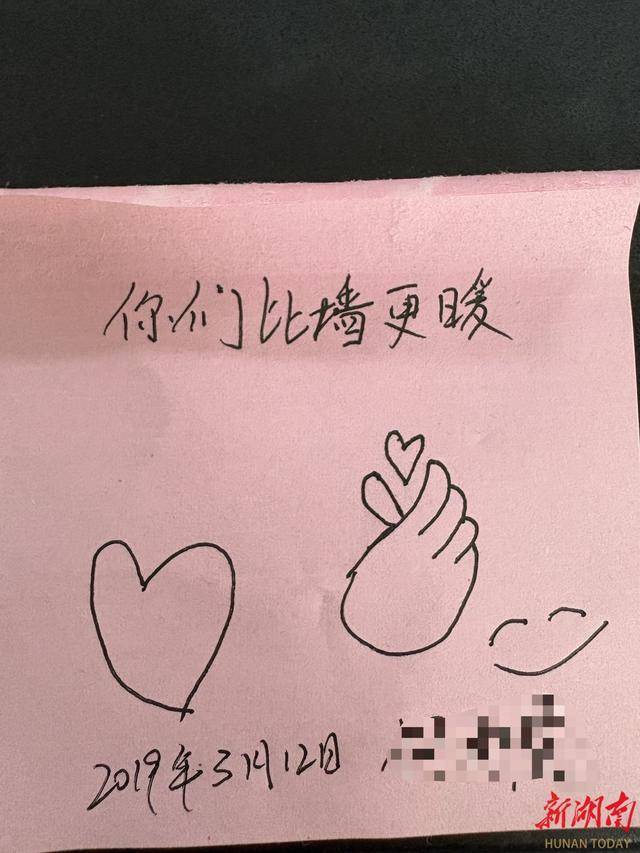 你们比墙更暖
2019年3月12日
新湖南
HUNAN TODAY